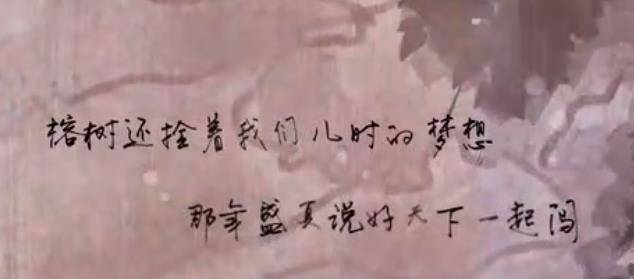 榕树还拴着我们儿时的梦想
那年盛夏说好天下一起闯